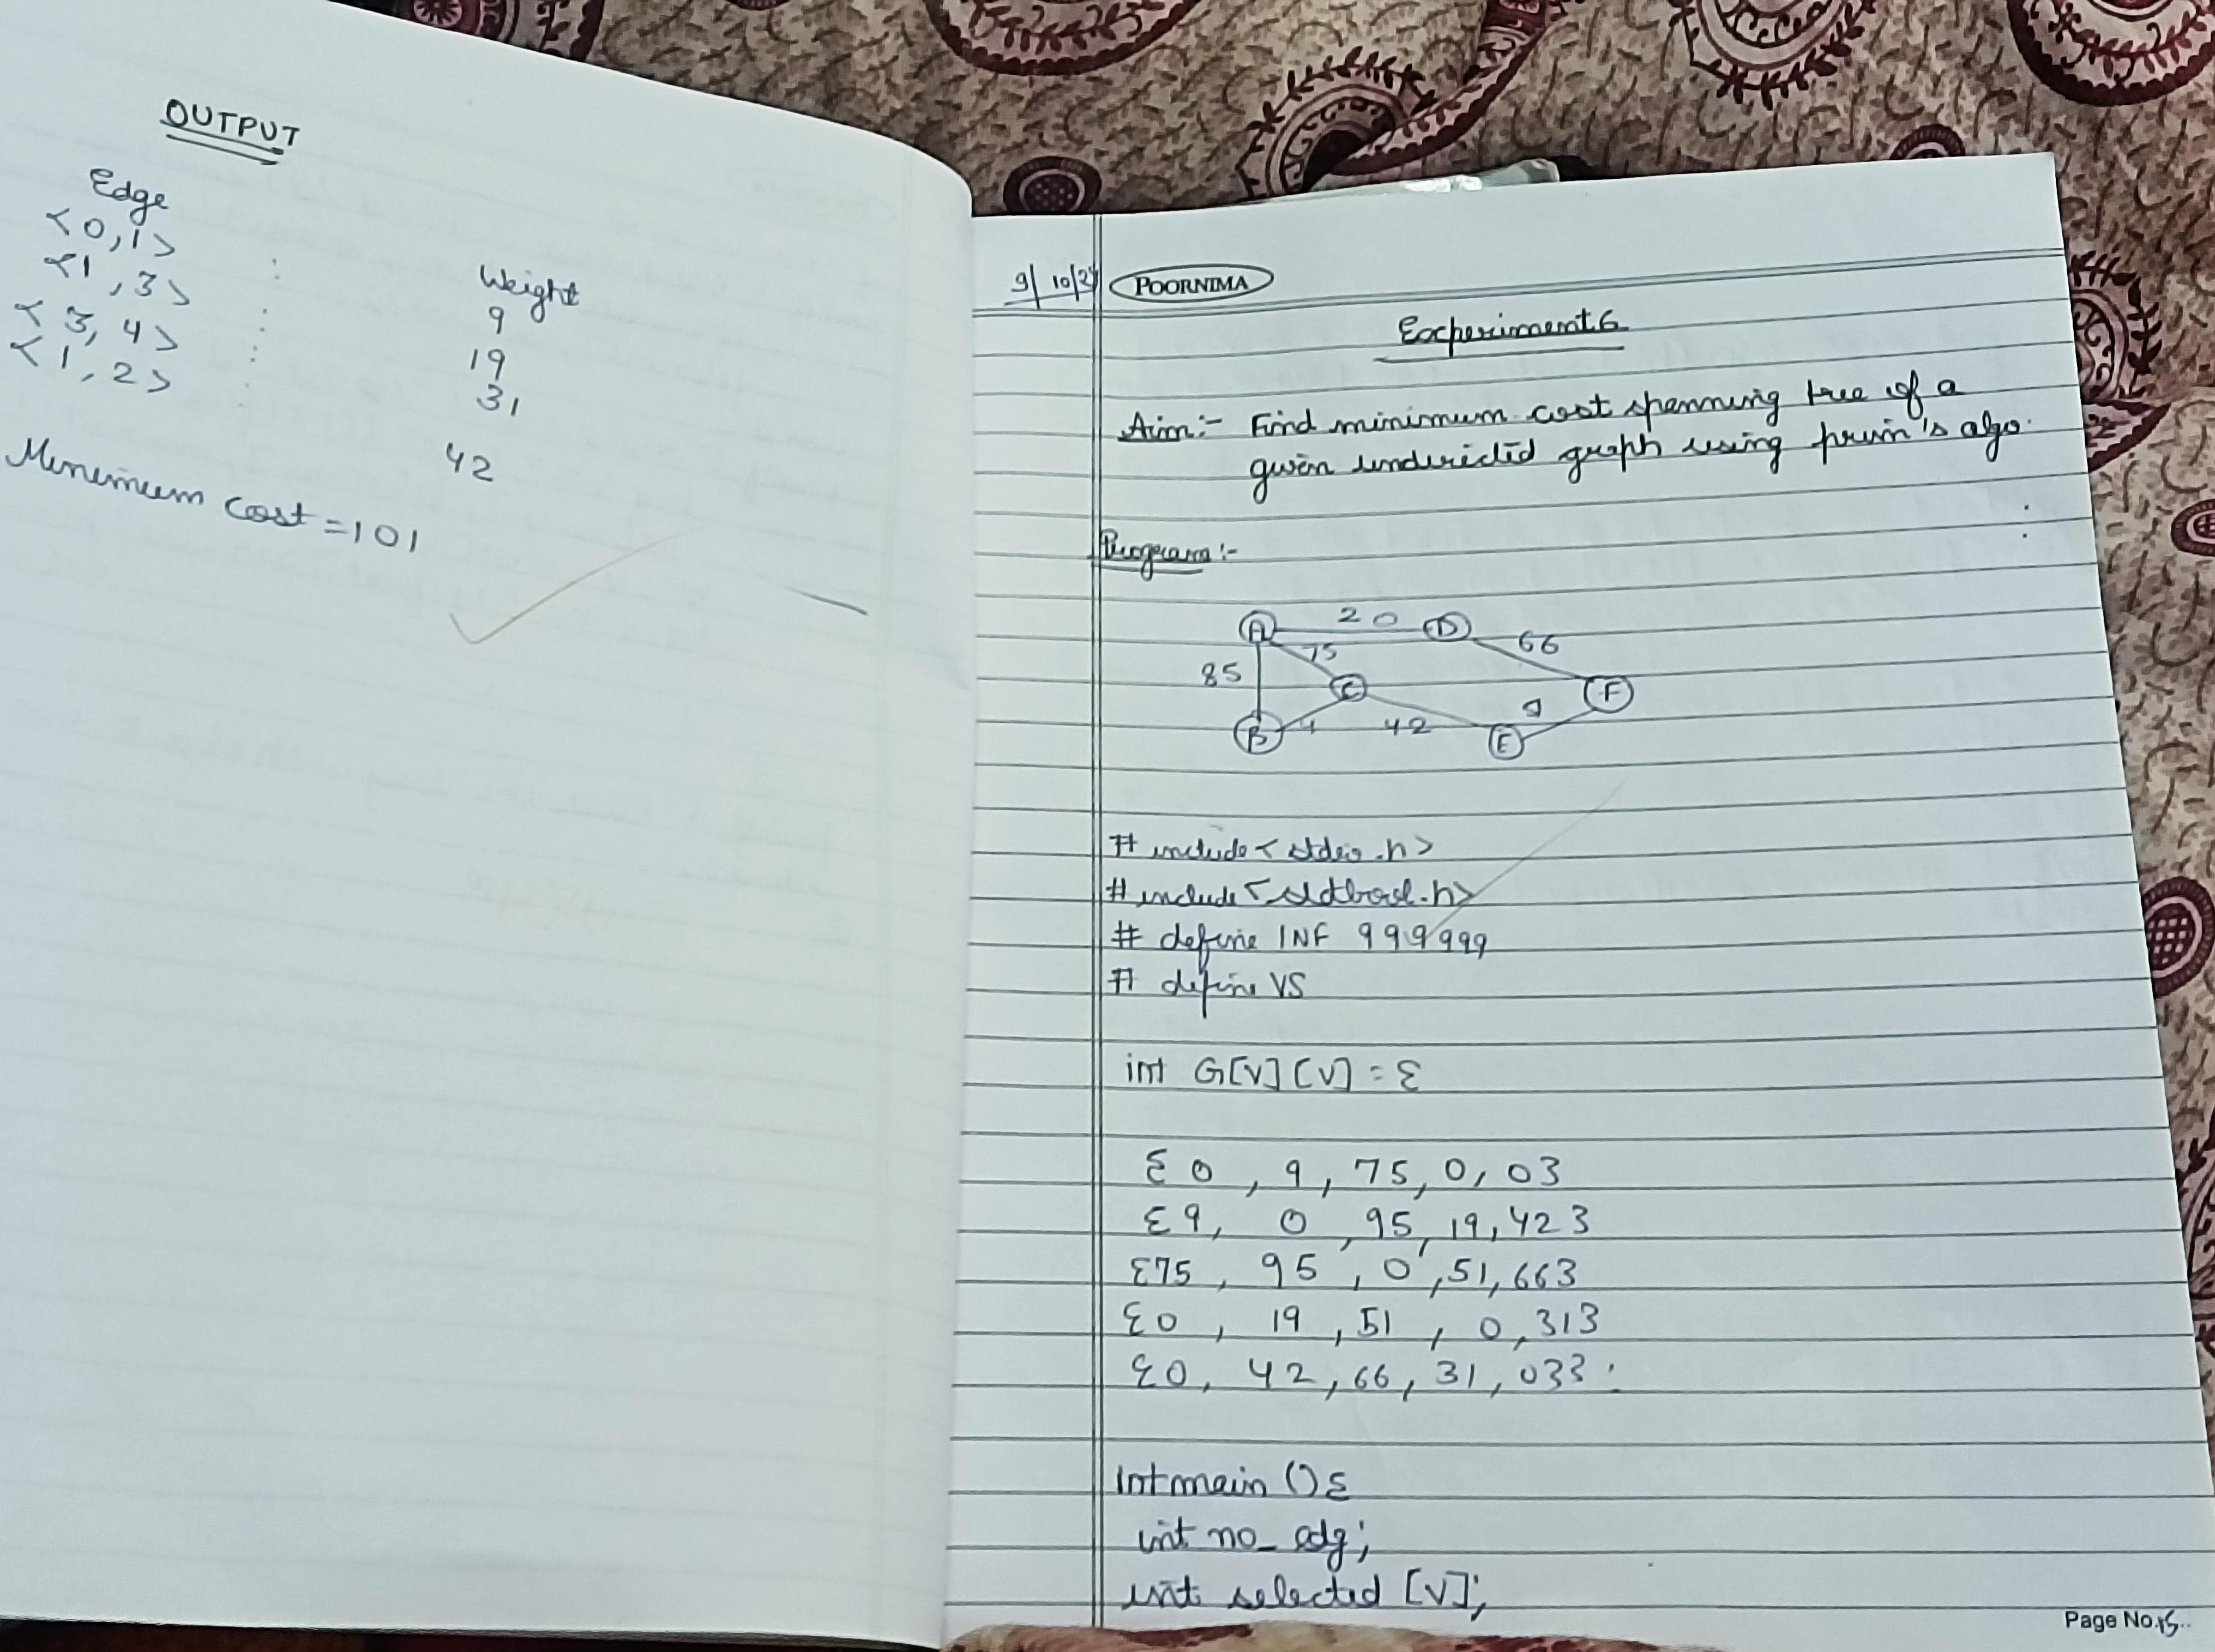 OUTPUT
Edge
Weight
<0,1> : 9
<1,3> : 19
<3,4> : 31
<1,2> : 42
Minimum cost = 101
9/10/24
POORNIMA
Experiment 6
Aim:- Find minimum cost spanning tree of a
given undericted graph using prim's algo.
Program:-
A 20 D
66
75
85
C
F
9
B 4 42 E
# include < stdio.h>
# include < stdbool.h>
# define INF 999999
# define V5
int G[V][V] = {
{0, 9, 75, 0, 0}
{9, 0, 95, 19, 42}
{75, 95, 0, 51, 66}
{0, 19, 51, 0, 31}
{0, 42, 66, 31, 0}};
int main () {
int no_edg;
int selected [V];
Page No.15